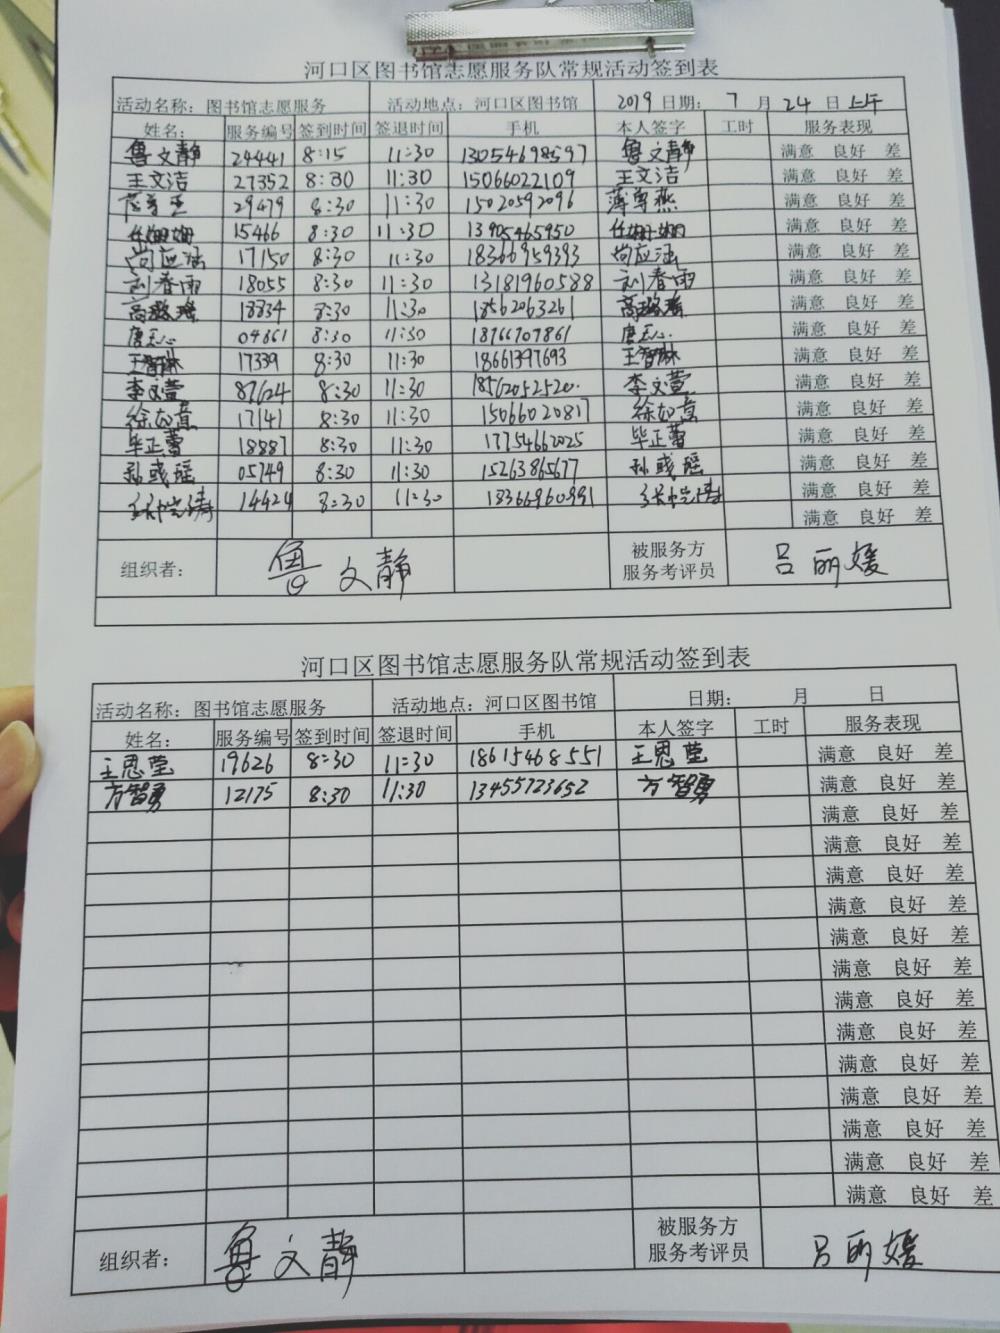 河口区图书馆志愿服务队常规活动签到表
活动名称：图书馆志愿服务 活动地点：河口区图书馆 2019 日期： 7 月 24 日 上午
姓名： 服务编号 签到时间 签退时间 手机 本人签字 工时 服务表现
鲁文静 24441 8:15 11:30 13054698597 鲁文静 满意 良好 差
王文洁 27352 8:30 11:30 15066022109 王文洁 满意 良好 差
29479 8:30 11:30 15020592096 满意 良好 差
任姗姗 15466 8:30 11:30 13905465950 任姗姗 满意 良好 差
尚应涵 17150 8:30 11:30 18366959393 尚应涵 满意 良好 差
刘春雨 18055 8:30 11:30 13181960588 刘春雨 满意 良好 差
高璐瑶 18834 8:30 11:30 18562063261 高璐瑶 满意 良好 差
04861 8:30 11:30 18766707861 满意 良好 差
王智琳 17339 8:30 11:30 18661397693 王智琳 满意 良好 差
李文萱 87624 8:30 11:30 18562052520. 李文萱 满意 良好 差
徐如意 17141 8:30 11:30 15066020817 徐如意 满意 良好 差
毕正蕾 18887 8:30 11:30 17754662025 毕正蕾 满意 良好 差
孙彧瑶 05749 8:30 11:30 15263865677 孙彧瑶 满意 良好 差
14424 8:30 11:30 18366960991 满意 良好 差
满意 良好 差
组织者： 鲁文静 被服务方 吕丽媛
服务考评员
河口区图书馆志愿服务队常规活动签到表
活动名称：图书馆志愿服务 活动地点：河口区图书馆 日期： 月 日
姓名： 服务编号 签到时间 签退时间 手机 本人签字 工时 服务表现
王恩莹 19626 8:30 11:30 18615468551 王恩莹 满意 良好 差
方智勇 12175 8:30 11:30 13455723652 方智勇 满意 良好 差
满意 良好 差
满意 良好 差
满意 良好 差
满意 良好 差
满意 良好 差
满意 良好 差
满意 良好 差
满意 良好 差
满意 良好 差
满意 良好 差
满意 良好 差
满意 良好 差
满意 良好 差
组织者： 鲁文静 被服务方 吕丽媛
服务考评员